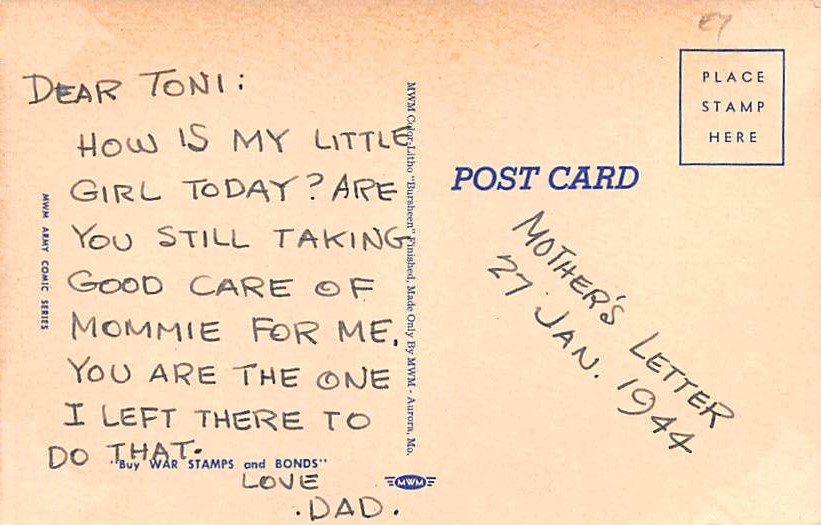 DEAR TONI:
HOW IS MY LITTLE
GIRL TODAY? ARE
YOU STILL TAKING
GOOD CARE OF
MOMMIE FOR ME.
YOU ARE THE ONE
I LEFT THERE TO
DO THAT.
"Buy WAR STAMPS and BONDS"
LOVE
.DAD.
MWM ARMY COMIC SERIES
MWM Color-Litho "Bursheen" Finished, Made Only By MWM - Aurora, Mo.
MWM
POST CARD
PLACE
STAMP
HERE
MOTHER'S LETTER
27 JAN. 1944